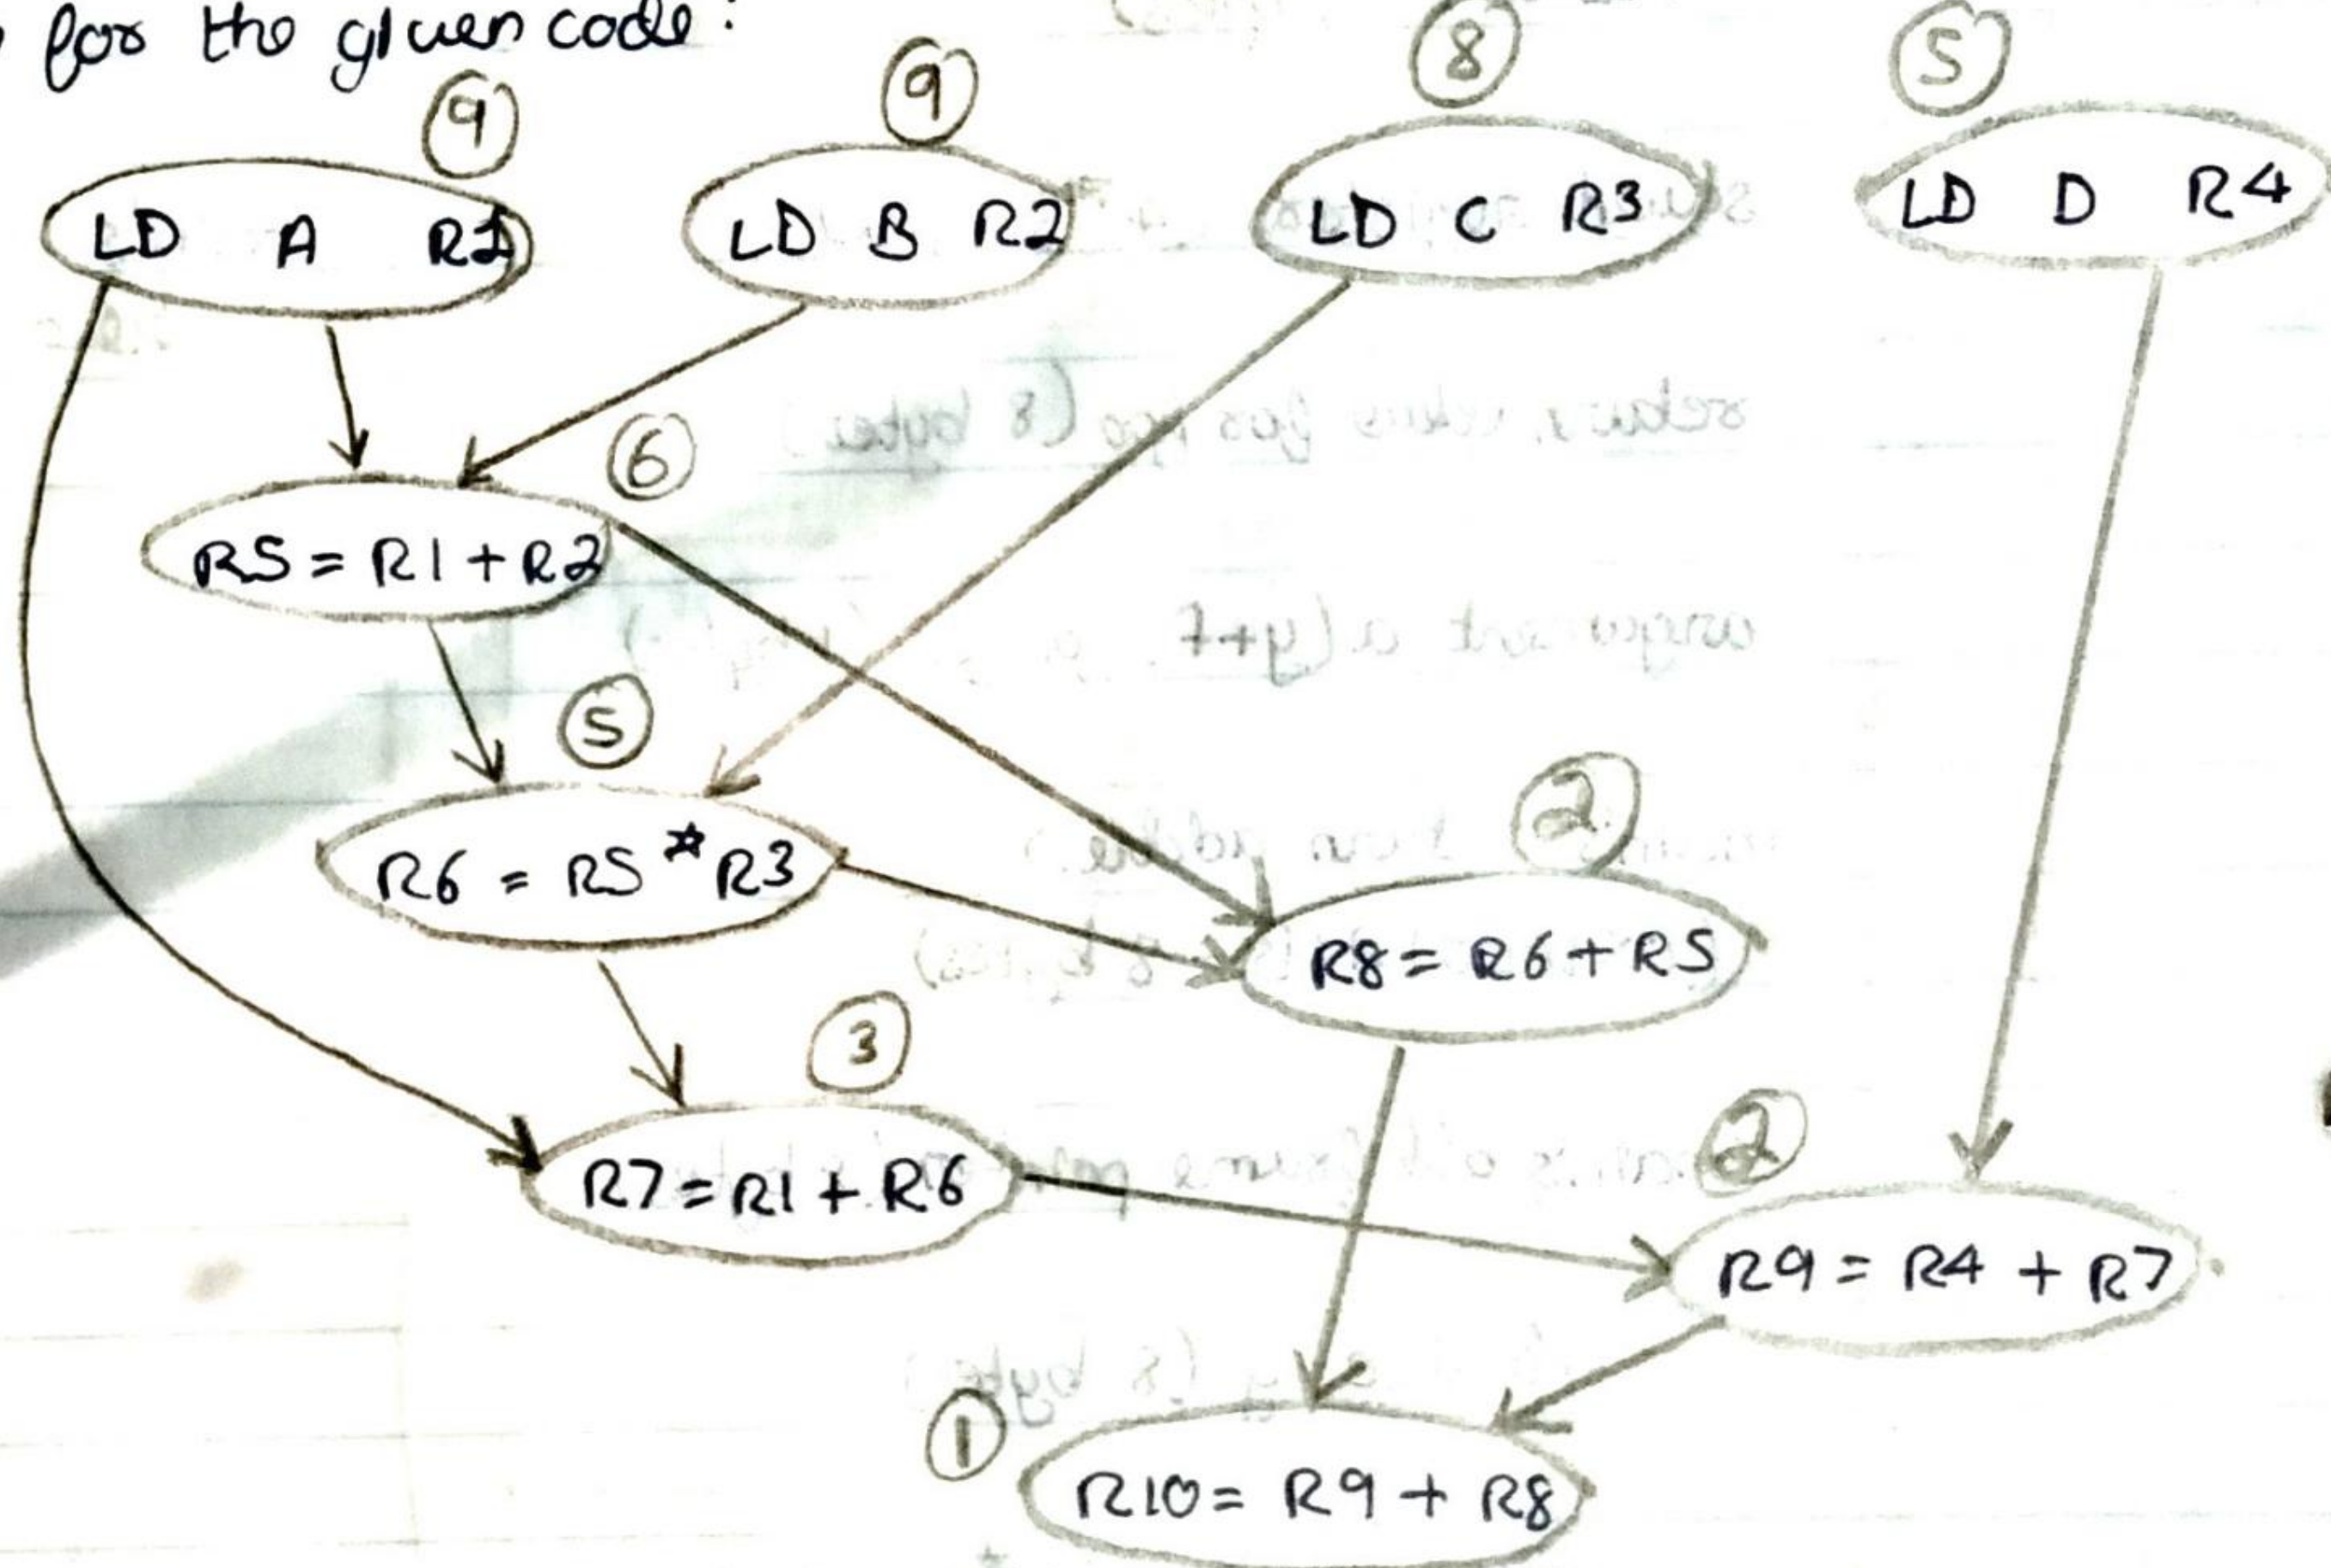 for the given code:
9 9 8 5
LD A R1 LD B R2 LD C R3 LD D R4
6
R5 = R1 + R2
5
R6 = R5 * R3
2
R8 = R6 + R5
3
R7 = R1 + R6
2
R9 = R4 + R7
1
R10 = R9 + R8